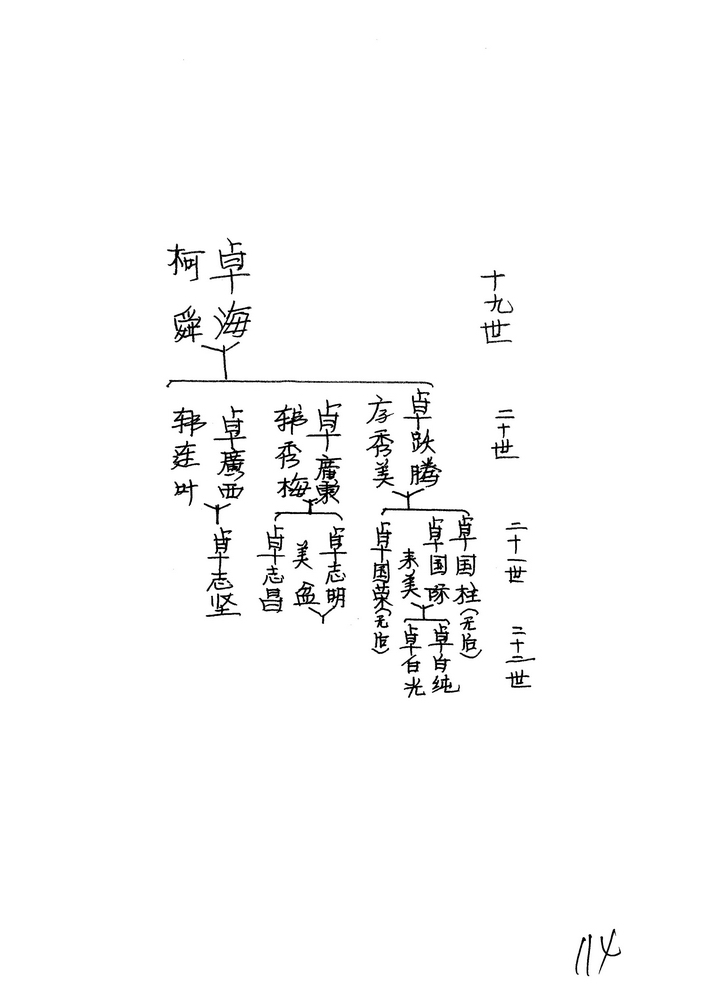 十九世
卓海
柯舜
二十世
卓跃腾
秀美
卓廣東
韩秀梅
卓廣西
韩连叶
二十一世
卓国柱(无后)
卓国际
来美
卓国荣(无后)
卓志明
美盆
卓志昌
卓志坚
二十二世
卓白纯
卓白光
114